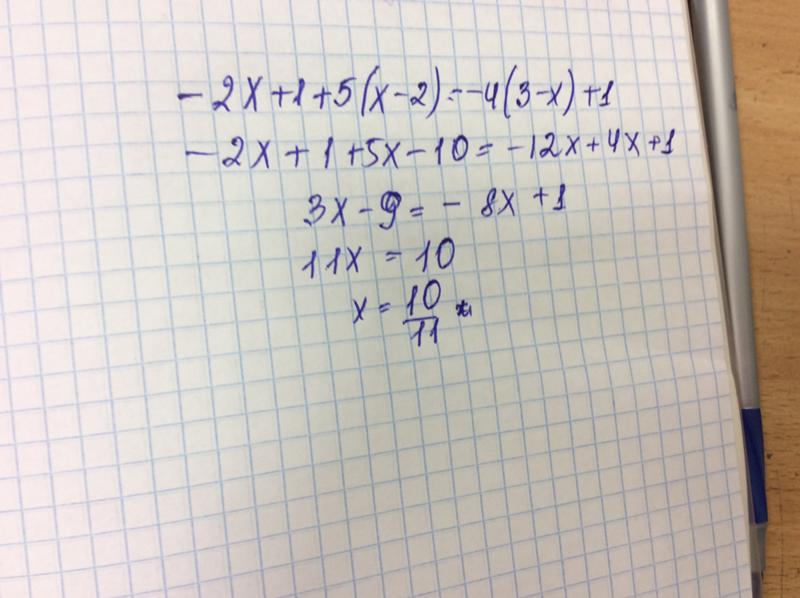 - 2x+1+5(x-2)=-4(3-x)+1
- 2x+1+5x-10=-12x+4x+1
3x-9=- 8x+1
11x = 10
x = 10/11